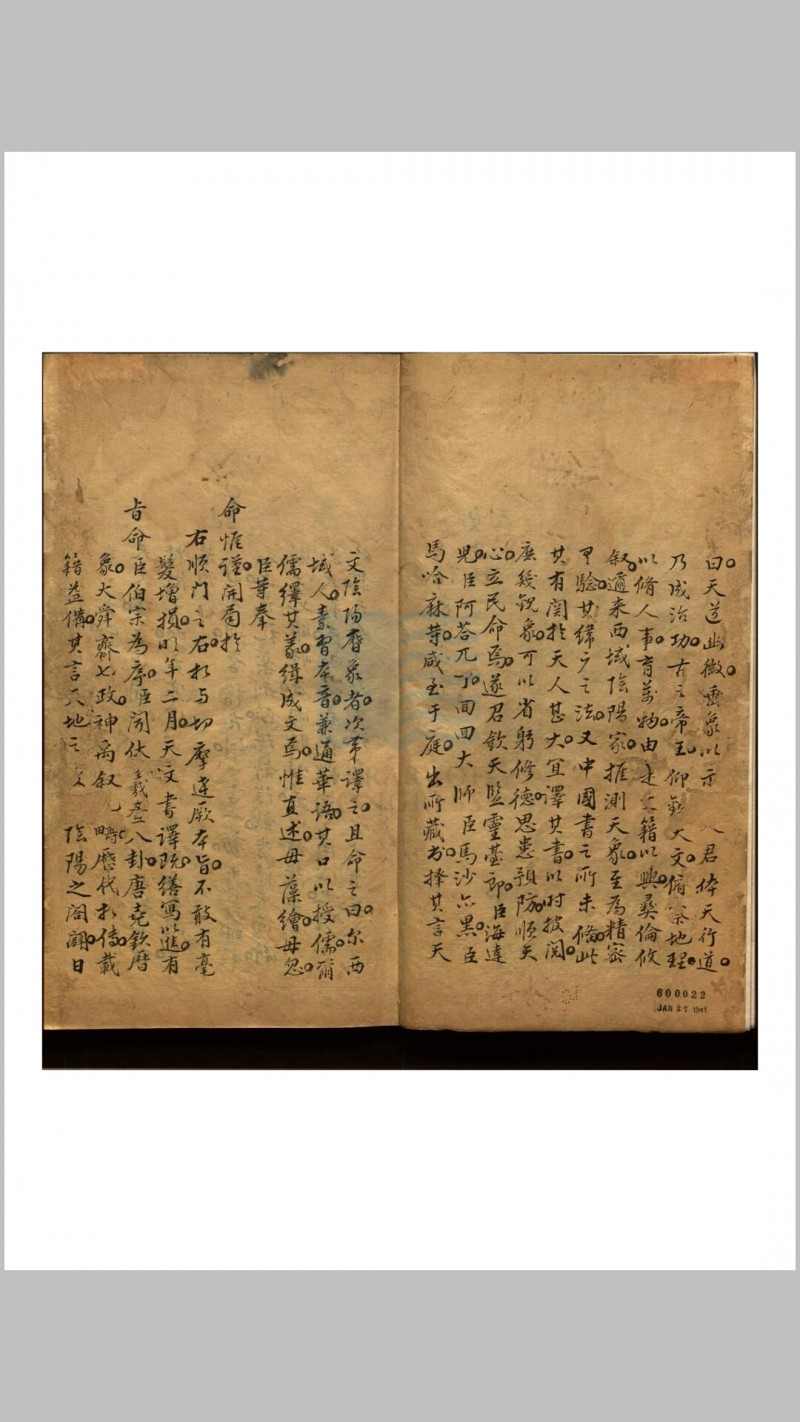 曰天道幽微垂象以示 人君体天行道
乃成治功古之帝王仰觀天文俯察地理
以脩人事育萬物由是文籍以興彝倫攸
叙邇来西域陰陽家推測天象至為精密
有驗其緯度之法又中國書之所未備此
其有関扵天人甚大宜譯其書以时披閱
庶幾觀象可以省躬修德思患預防順天
心立民命焉遂召欽天監靈䑓郎臣海達
兒臣阿荅兀丁回回大師臣馬沙亦黑臣
馬哈麻等咸至于庭出所藏书择其言天
文陰陽曆象者次苐譯之且命之曰尔西
域人素習本音兼通華語其口以授儒爾
儒繹其義緝成文焉惟直述毋藻繪毋忽
臣等奉
命惟谨開局扵
右順門之右相与切摩逹厥本旨不敢有毫
髮增損明年二月天文書譯既繕寫以進有
旨命臣伯宗為序臣聞伏羲畫八卦唐堯欽曆
象大舜齊七政神禹叙九疇歷代相傳載
籍益備其言天地之 陰陽之闔闢日
600022
JAN 27 1941